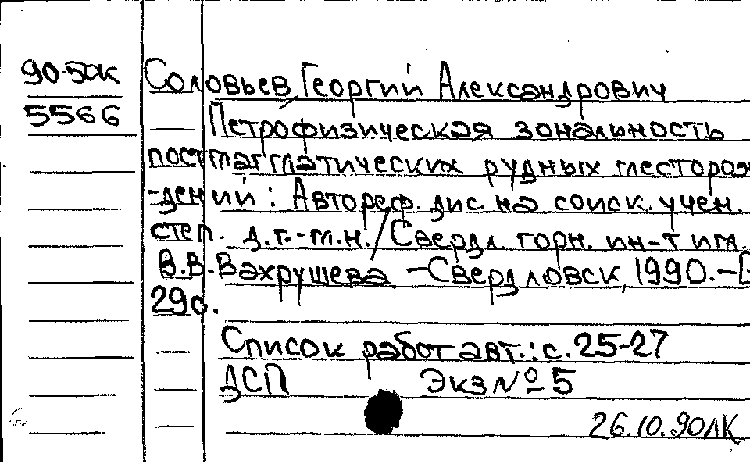 90-50К
5566
Соловьев Георгий Александрович
Петрофизическая зональность
постмагматических рудных местораж
-дений: Автореф. дис. на соиск. учен.
степ. д.г.-м.н. / Свердл. горн. ин-т им.
В.В. Вахрушева - Свердловск, 1990. - [
29с.
Список работ авт.: с. 25-27
ДСП Экз № 5
26.10.90 ЛК